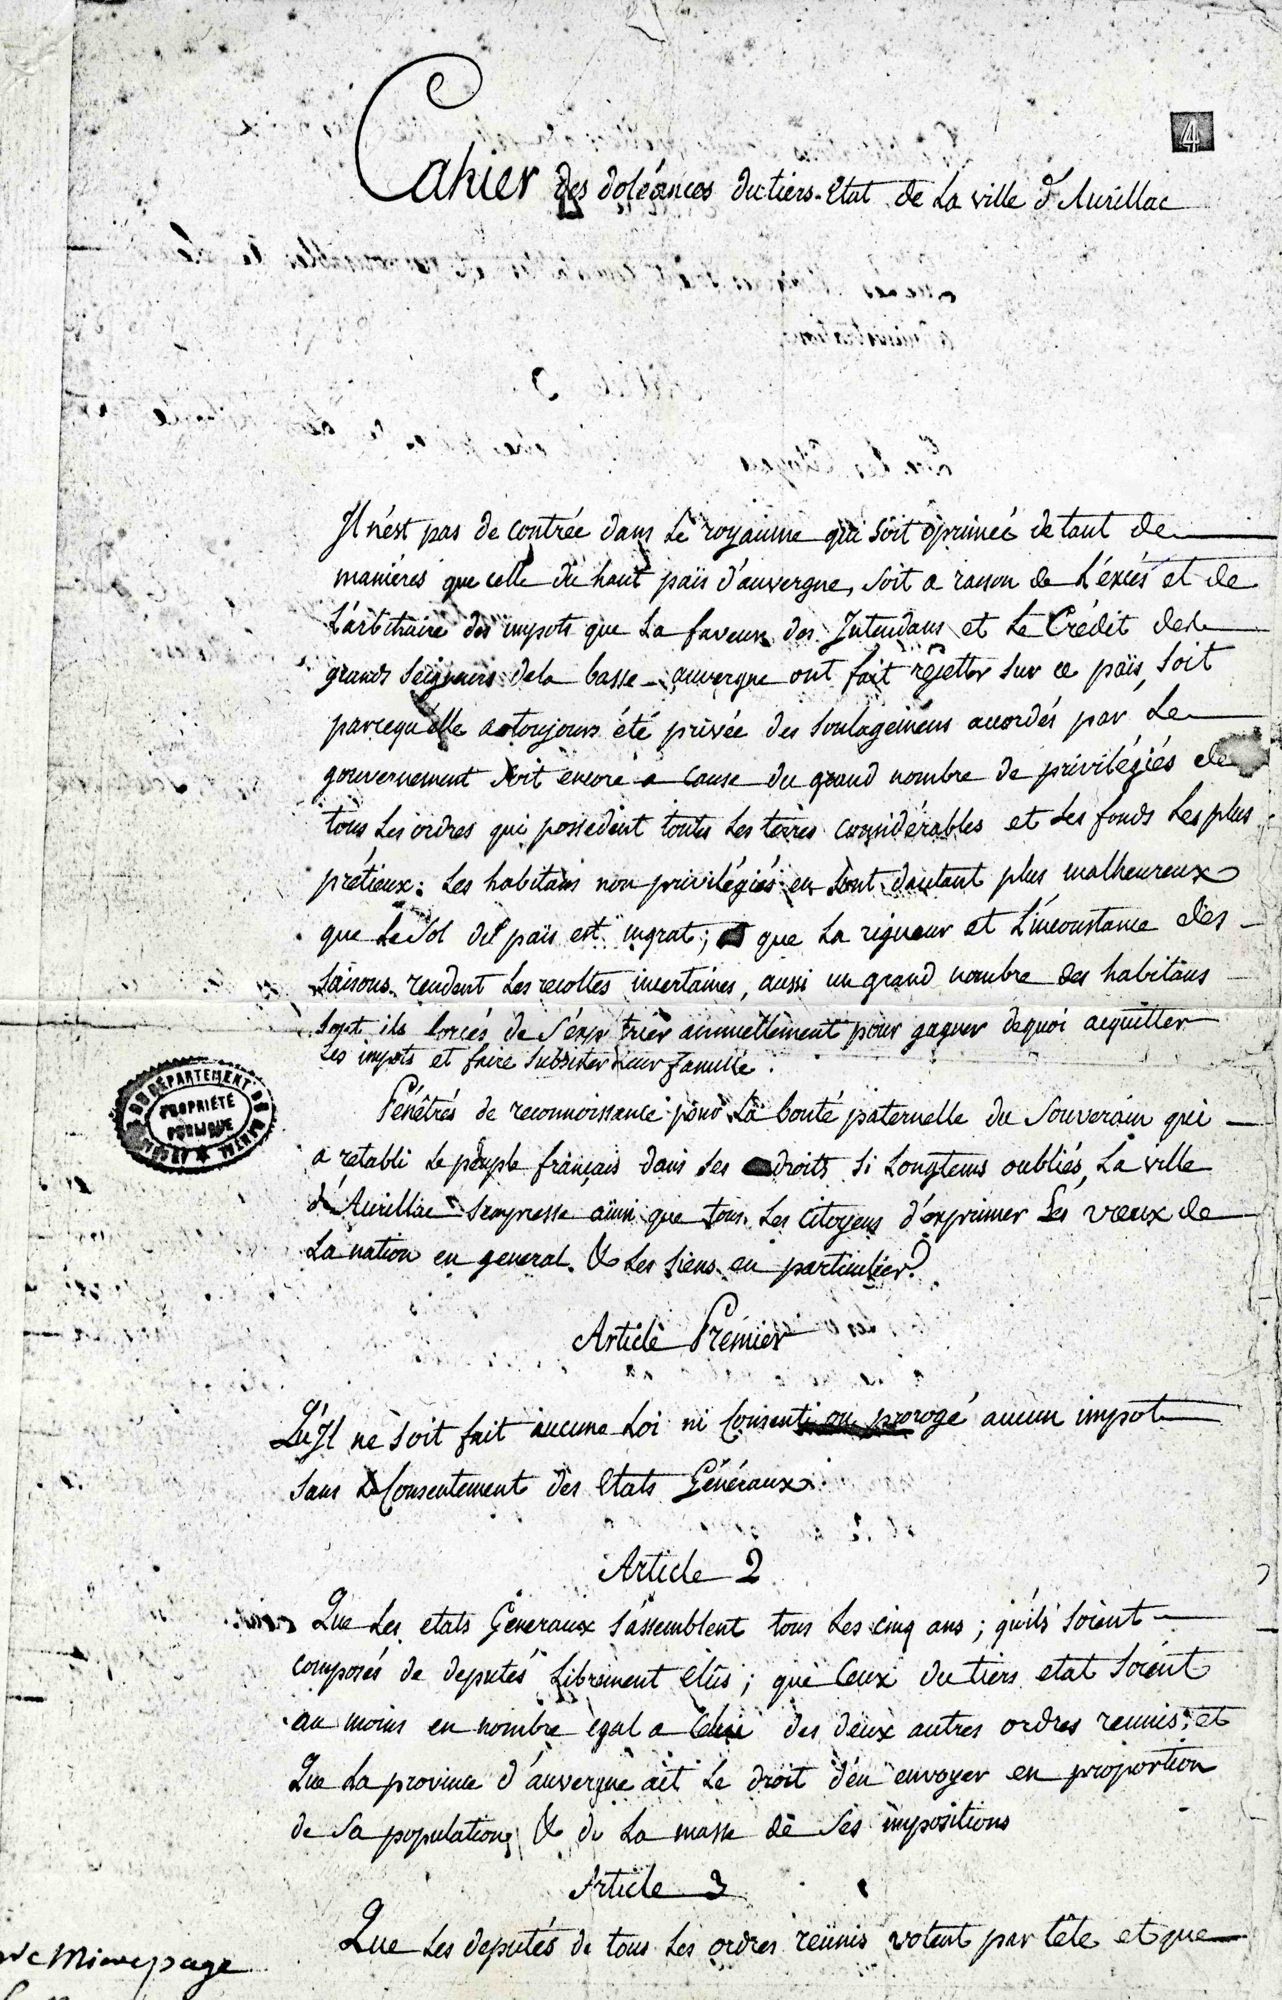 4
Cahier des doléances du tiers-Etat de La ville d'Aurillac
Il n'est pas de contrée dans Le royaume qui soit oprimeé de tant de
maniéres que celle du haut païs d'auvergne, soit a raison de L'éxcés et de
L'arbitraire des impots que La faveur des Intendans et Le Crédit des
grands seigneurs dela basse-auvergne ont fait rejetter sur ce païs, soit
parcequ'elle a toujours été privée des soulagemens accordés par Le
gouvernement soit encore a cause du grand nombre de privilégiés de
tous Les ordres qui possedent toutes Les terres considérables et Les fonds Les plus
prétieux: Les habitans non privilégiés en sont dautant plus malheureux
que Le sol du païs est ingrat; que La rigueur et L'inconstance des
saisons rendent Les recoltes incertaines, aussi un grand nombre des habitans
sont ils forcés de s'éxpatrier annuellement pour gagner dequoi acquitter
Les impots et faire subsister Leur famille.
Pénétrés de reconnoissance pour La bonté paternelle du Souverain qui
a retabli Le peuple français dans ses droits si Longtems oubliés, La ville
d'Aurillac s'empresse ainsi que tous Les Citoyens d'éxprimer Les voeux de
La nation en general & Les siens en particulier.
Article Premier
Qu'Il ne soit fait aucune Loi ni Consenti ou prorogé aucun impot
sans Le Consentement des Etats Généraux.
Article 2
Que Les etats Géneraux s'assemblent tous Les cinq ans; qu'ils soient
composés de deputés Librement élus; que Ceux du tiers etat soient
au moins en nombre egal a Celui des deux autres ordres reunis; et
Que La province d'auvergne ait Le droit d'en envoyer en proportion
de sa population & de La masse de ses impositions
Article 3
Que Les deputés de tous Les ordres réunis votent par tête et que
DU DÉPARTEMENT DU CANTAL
PROPRIÉTÉ
PUBLIQUE